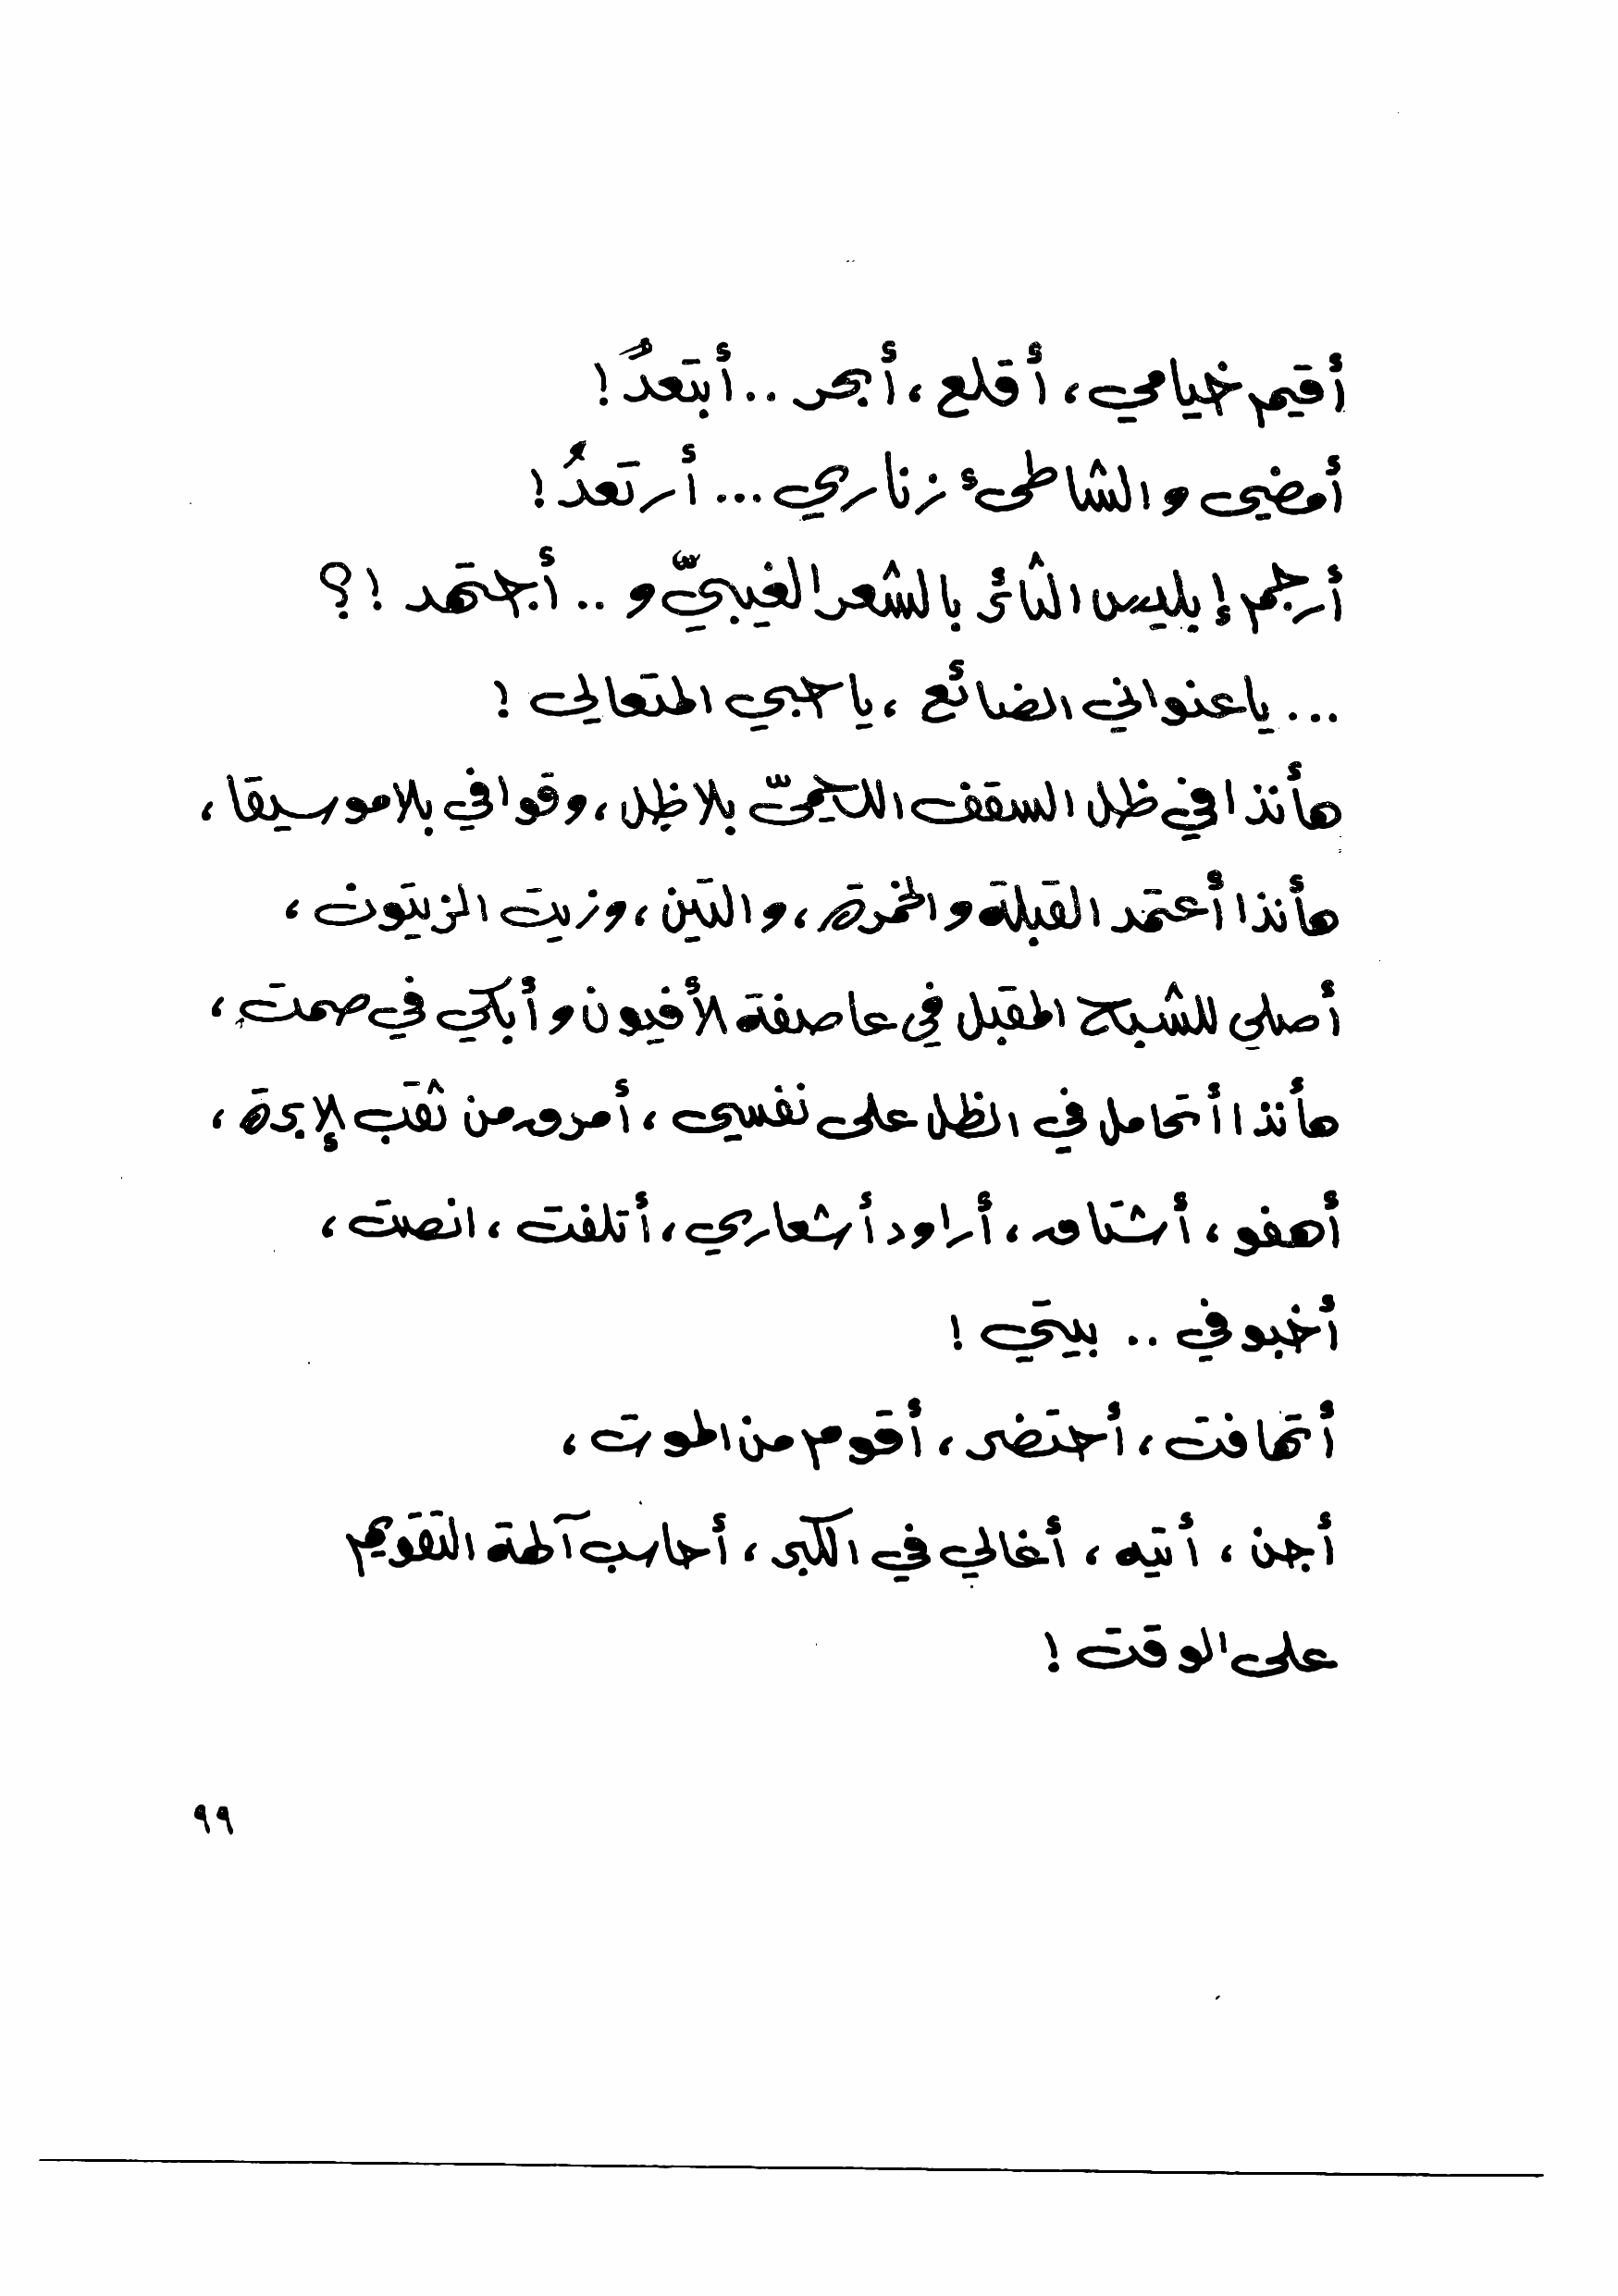 أقيم خيامي، أقلع، أبحر .. أبتعدُ !
أمضي و الشاطئ زناري ... أرتعدُ !
أرجم إبليس الثائر بالشعر الغيبيّ و .. أجتهد !؟
... ياعنواني الضائع ، يا حبي المتعالي !
هأنذا في ظل السقف اللحميّ بلا ظل ، وقوافي بلا موسيقا ،
هأنذا أعتمد القبلة و الخمرة ، و التين ، وزيت الزيتون ،
أصلي للشبح المقبل في عاصفة الأفيون و أبكي في صمت ،
هأنذا أتحامل في الظل على نفسي ، أمرق من ثقب الإبرة ،
أهفو ، أشتاق ، أراود أشعاري ، أتلفت ، انصت ،
أخبو في .. بيتي !
أتهافت ، أحتضر ، أقوم من الموت ،
أجن ، أتيه ، أغالي في الكبر ، أحاسب آلهة التقويم
على الوقت !
٩٩